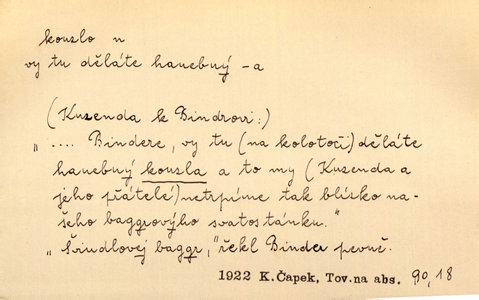 kouzlo n
vy tu děláte hanebný -a
(Kuzenda k Bindrovi:)
„.... Bindere, vy tu (na kolotoči) děláte
hanebný kouzla a to my (Kuzenda a
jeho přátelé) netrpíme tak blízko na-
šeho baggrovýho svatostánku.“
„Švindlovej baggr,“ řekl Binder pevně.
1922 K.Čapek, Tov.na abs. 90,18